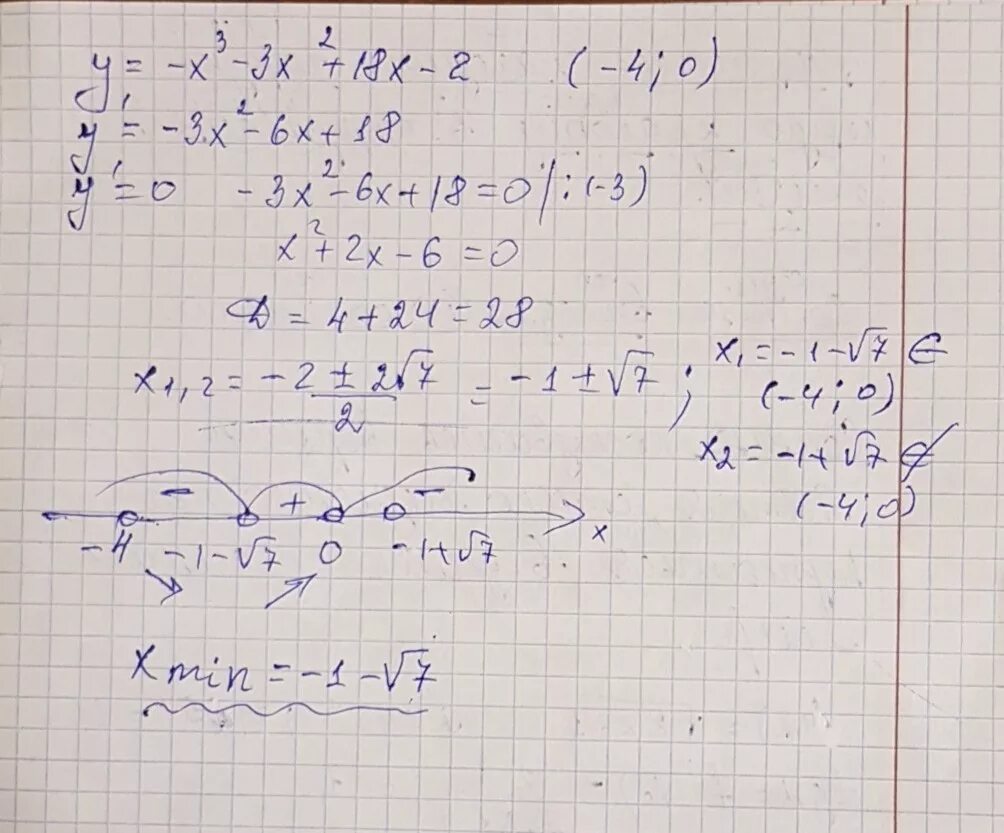 y = -x³ - 3x² + 18x - 2 (-4; 0)
y' = -3x² - 6x + 18
y' = 0 -3x² - 6x + 18 = 0 | : (-3)
x² + 2x - 6 = 0
D = 4 + 24 = 28
x₁,₂ = (-2 ± 2√7)/2 = -1 ± √7 ; x₁ = -1 - √7 ∈
(-4; 0)
x₂ = -1 + √7 ∉
(-4; 0)
- + -
-4 -1-√7 0 -1+√7 x
x min = -1 - √7